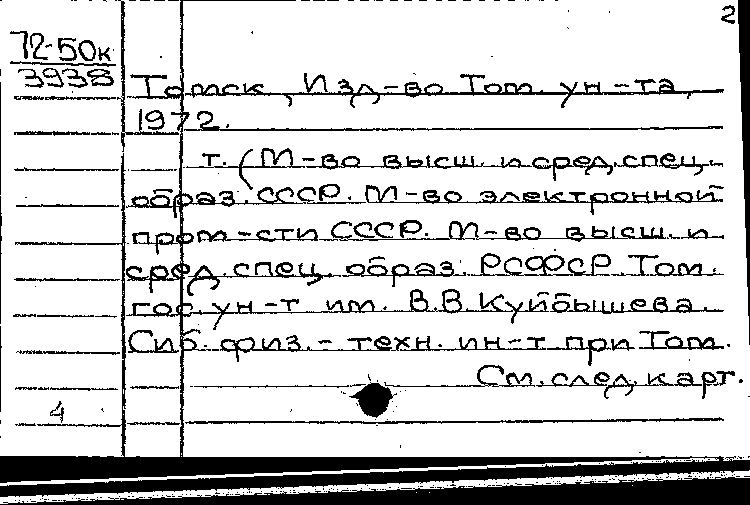 2
72-50к
3938
Томск, Изд-во Том. ун-та,
1972.
т. (М-во высш. и сред. спец.
образ. СССР. М-во электронной
пром-сти СССР. М-во высш. и
сред. спец. образ. РСФСР. Том.
гос. ун-т им. В.В. Куйбышева.
Сиб. физ.-техн. ин-т при Том.
См. след. карт.
4